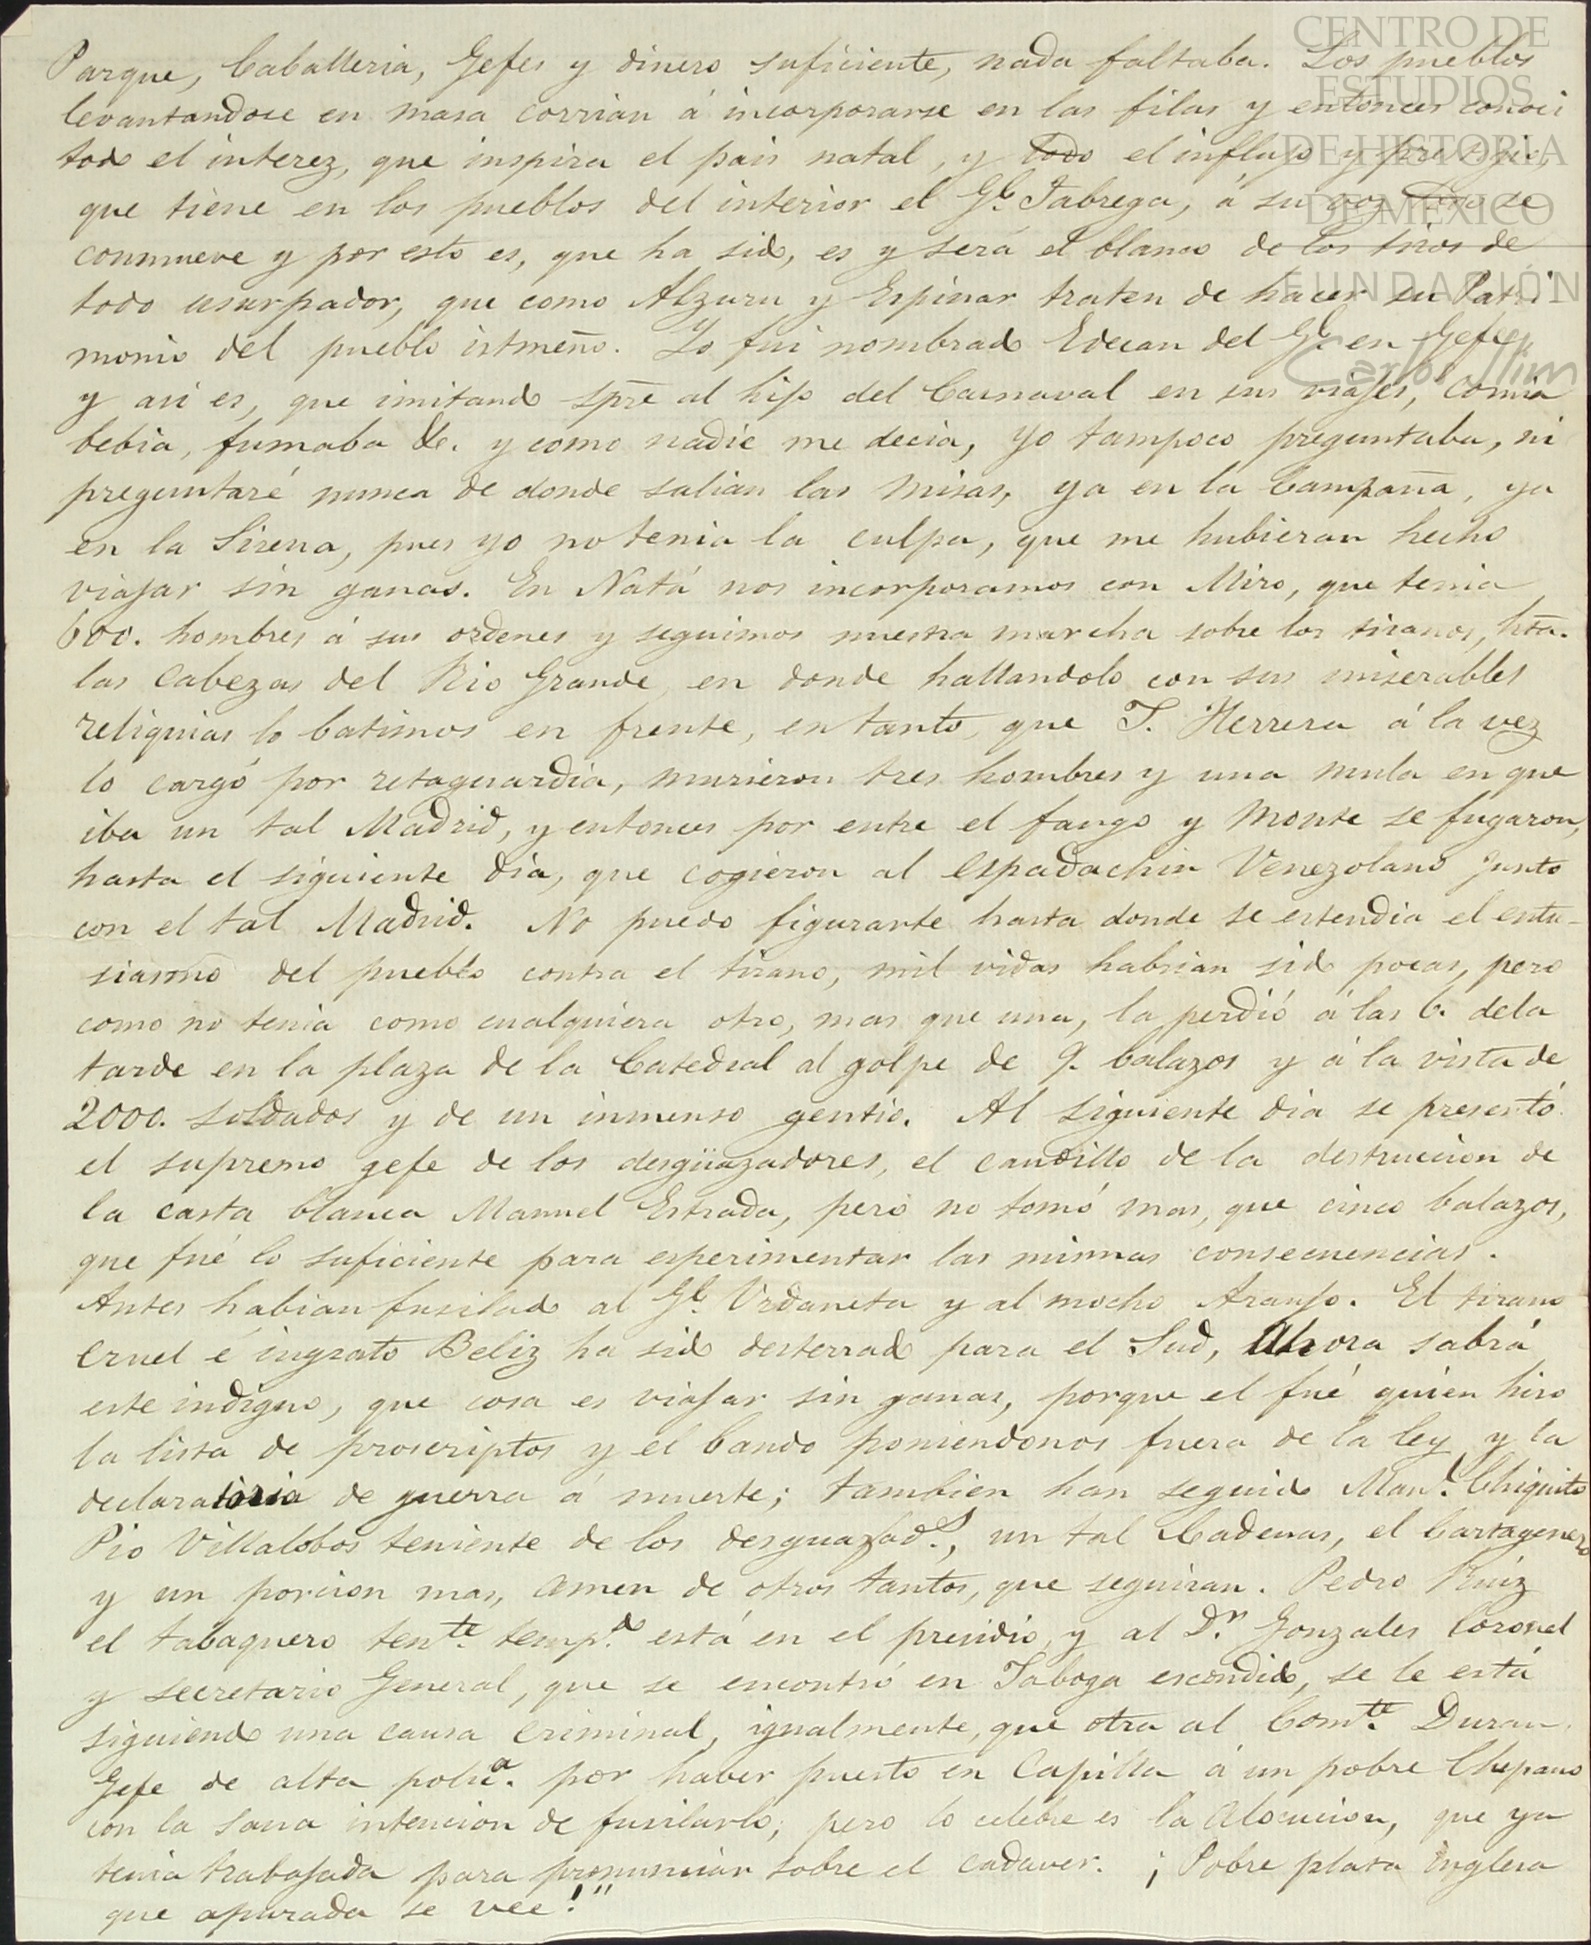 CENTRO DE
ESTUDIOS
DE HISTORIA
DE MEXICO
FUNDACIÓN
Carlos Slim
Parque, Caballeria, Gefes y dinero suficiente, nada faltaba. Los pueblos
levantandose en masa corrian á incorporarse en las filas y entonces conoci
todo el interez, que inspira el pais natal, y todo el influjo y prestigio,
que tiene en los pueblos del interior el Gl. Fabrega, á su voz todo se
conmueve y por esto es, que ha sido, es y será el blanco de los tiros de
todo usurpador, que como Alzuru y Espinar traten de hacer su Patri
monio del pueblo istmeño. Yo fui nombrado Edecan del Gl. en Gefe,
y asi es, que imitando spre al hijo del Carnaval en sus viajes, comia
bebia, fumaba &. y como nadie me decia, yo tampoco preguntaba, ni
preguntaré nunca de donde salian las misas, ya en la Campaña, ya
en la Sirena, pues yo no tenia la culpa, que me hubieran hecho
viajar sin ganas. En Natá nos incorporamos con Miro, que tenia
600. hombres á sus ordenes y seguimos nuestra marcha sobre los tiranos, hta.
las Cabezas del Rio Grande, en donde hallandolo con sus miserables
reliquias lo batimos en frente, en tanto, que T. Herrera á la vez
lo cargó por retaguardia, murieron tres hombres y una mula en que
iba un tal Madrid, y entonces por entre el fango y monte se fugaron,
hasta el siguiente dia, que cogieron al espadachin Venezolano junto
con el tal Madrid. No puedo figurarte hasta donde se estendia el entu-
siasmo del pueblo contra el tirano, mil vidas habrian sido pocas, pero
como no tenia como cualquiera otro, mas que una, la perdió á las 6. dela
tarde en la plaza de la Catedral al golpe de 9. balazos y á la vista de
2000. soldados y de un inmenso gentio. Al siguiente dia se presentó
el supremo gefe de los desgüazadores, el caudillo de la destruccion de
la casta blanca Manuel Estrada, pero no tomó mas, que cinco balazos,
que fué lo suficiente para esperimentar las mismas consecuencias.
Antes habian fusilado al Gl. Urdaneta y al mocho Araujo. El tirano
cruel é ingrato Beliz ha sido desterrado para el Sud, Ahora sabrá
este indigno, que cosa es viajar sin ganas, porque el fué quien hiso
la lista de proscriptos y el bando poniendonos fuera de la ley y la
declaratoria de guerra á muerte; tambien han seguido Manl. Chiquito
Pio Villalobos teniente de los desguazads., un tal Cadenas, el Cartagenero
y un porcion mas, amen de otros tantos, que seguiran. Pedro Ruiz
el tabaquero tente. tempdo. está en el presidio, y al Dr. Gonzales Coronel
y secretario General, que se encontró en Taboga escondido, se le está
siguiendo una causa criminal, igualmente, que otra al Comte. Duran
Gefe de alta polica. por haber puesto en Capilla á un pobre Chepano
con la sana intencion de fusilarlo; pero lo celebre es la alocucion, que ya
tenia trabajada para pronunciar sobre el cadaver. ¡Pobre plata inglesa
que apurada se vee!"